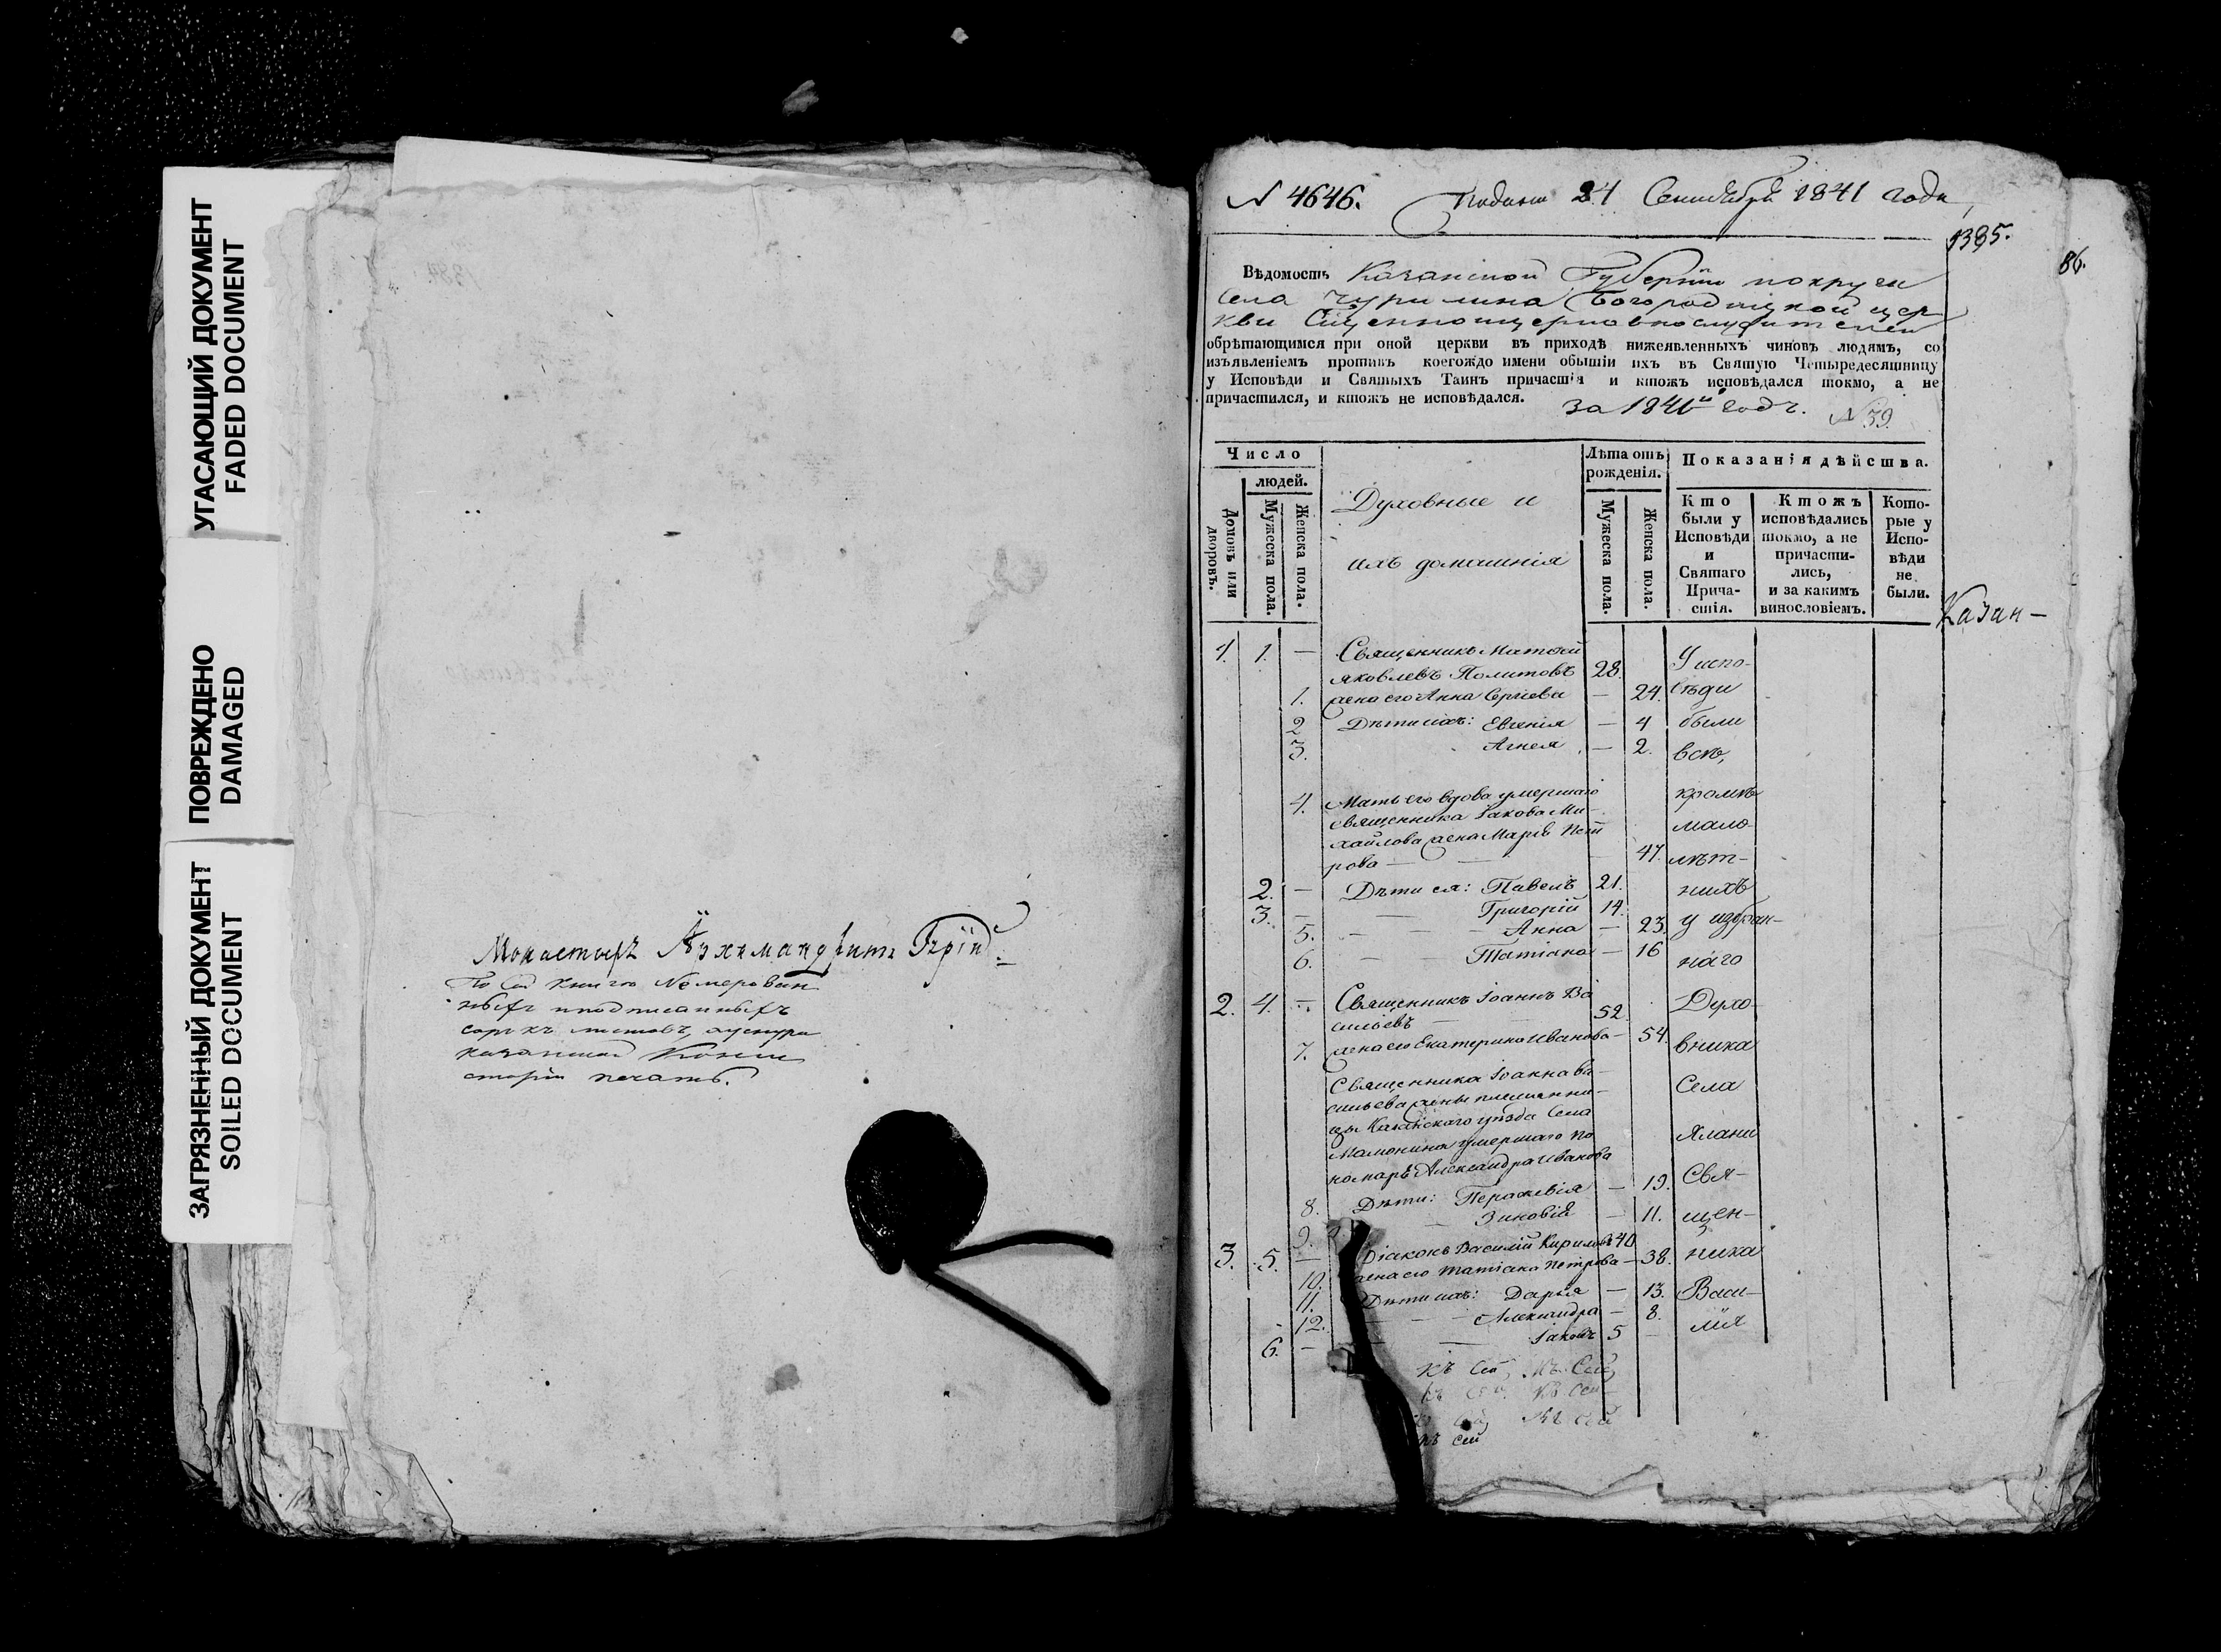 УГАСАЮЩИЙ ДОКУМЕНТ
FADED DOCUMENT
ПОВРЕЖДЕНО
DAMAGED
ЗАГРЯЗНЕННЫЙ ДОКУМЕНТ
SOILED DOCUMENT
Монастыръ Архимандритъ
По сей книгѣ
подписанныхъ
сорокъ листовъ,
казанской Конси
сторіи печать.
N 4646. Подана 24 Сентября 1841 года
1385.
86.
Вѣдомость Казанской Губерніи
села Чурилина Богородицкой цер
кви Сщенноцерковнослужителей
обрѣтающимся при оной церкви въ приходѣ нижеявленныхъ чиновъ людямъ, со
изъявленіемъ противъ коегождо имени обытіи ихъ въ Святую Четыредесятницу
у Исповѣди и Святыхъ Таинъ причастія и ктожъ исповѣдался токмо, а не
причастился, и ктожъ не исповѣдался. за 1841й годъ. N 39.
Число
людей.
Домовъ или дворовъ.
Мужеска пола.
Женска пола.
Духовные и
ихъ домашнія
Лѣта отъ рожденія.
Мужеска пола.
Женска пола.
Показанія дѣйства.
Кто были у Исповѣди и Святаго Прича-стія.
Ктожъ исповѣдались токмо, а не причасти-лись, и за какимъ винословіемъ.
Кото-рые у Испо-вѣди не были.
Казан-
1. 1. — Священникъ Матѳей
яковлевъ Политовъ 28. У испо-
1. жена его Анна Сергіева — 24. вѣди
2 Дѣти ихъ: Евгенія — 4 были
3. Агнея — 2. всѣ,
4. Мать его вдова умершаго кромѣ
священника Іакова Ми- мало-
хайлова жена Марія Пет
рова — 47. лѣт-
2. — Дѣти ея: Павелъ 21. нихъ
3. — — Григорій 14. у избран-
5. — — Анна — 23.
6. — Татіана — 16 наго
2. 4. — Священникъ Іоаннъ Ва Духо-
сильевъ — 52.
7. жена его Екатерина Иванова — 54. вника
Священника Іоанна Ва-
сильева жены племянни- Села
цы Казанскаго уѣзда Села
Мамонина умершаго по
номаря Александра Иванова
8. Дѣти: Параскевія — 19. Свя-
9. — Зиновія — 11. щен-
3. 5. — Діаконъ Василій Кириловъ 40 ника
10. жена его Татіана Петрова — 38.
11. Дѣти ихъ: Дарья — 13. Васи-
12. — — Александра — 8.
6. — — Іаковъ 5 — лія
къ сей
къ сей